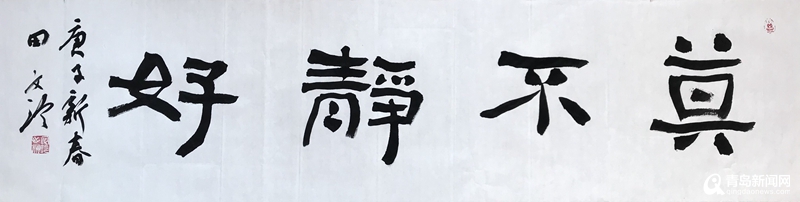 莫不靜好
庚子新春
田文
青岛新闻网
qingdaonews.com